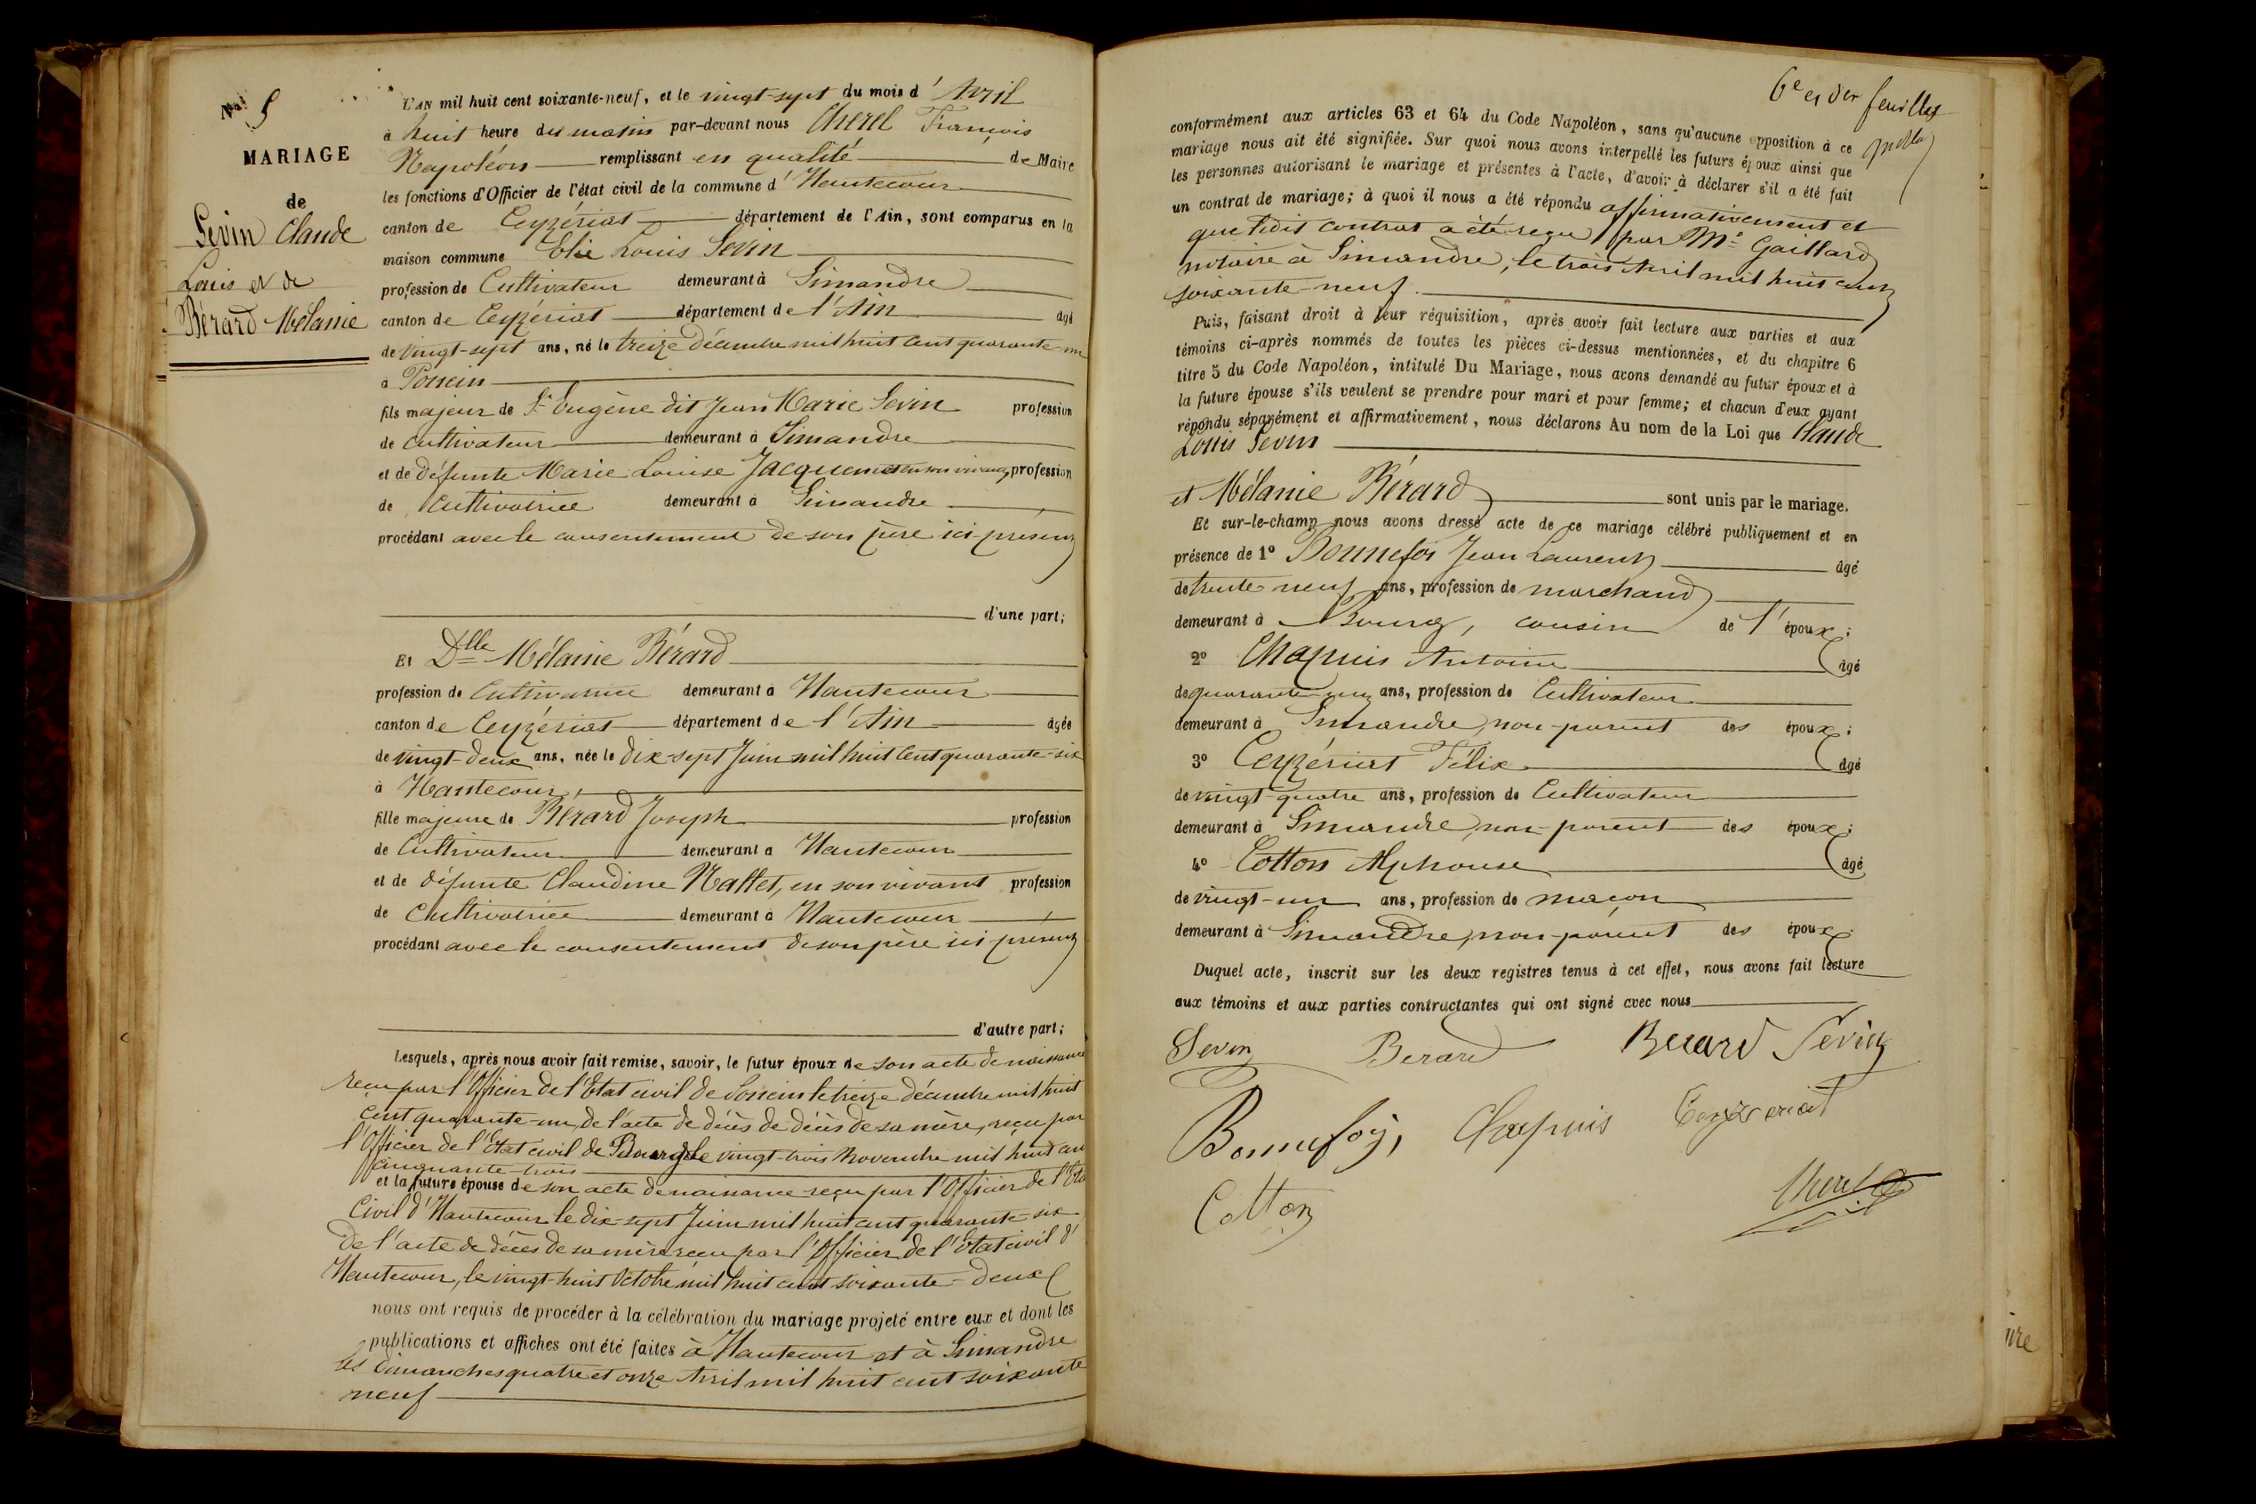 N° 5
MARIAGE
de
Sevin Claude
Louis et de
Bérard Mélanie
L'AN mil huit cent soixante-neuf, et le vingt-sept du mois d'Avril
à huit heure du matin par-devant nous Cherel François
Napoléon remplissant en qualité de Maire
les fonctions d'Officier de l'état civil de la commune d'Hautecour
canton de Ceyzériat département de l'Ain, sont comparus en la
maison commune Louis Sevin
profession de Cultivateur demeurant à Simandre
canton de Ceyzériat département de l'Ain âgé
de vingt-sept ans, né le treize décembre mil huit cent quarante-un
à
fils majeur de Sr Eugène dit Jean Marie Sevin profession
de cultivateur demeurant à Simandre
et de défunte Marie Louise en son vivant, profession
de Cultivatrice demeurant à Simandre
procédant avec le consentement de son père ici présent
d'une part;
Et Dlle Mélanie Bérard
profession de Cultivatrice demeurant à Hautecour
canton de Ceyzériat département de l'Ain âgée
de vingt-deux ans, née le dix-sept Juin mil huit cent quarante-six
à Hautecour,
fille majeure de Bérard Joseph profession
de Cultivateur demeurant à Hautecour
et de défunte Claudine Nallet, en son vivant profession
de Cultivatrice demeurant à Hautecour
procédant avec le consentement de son père ici présent
d'autre part;
Lesquels, après nous avoir fait remise, savoir, le futur époux de son acte de naissance
reçu par l'Officier de l'Etat civil de le treize décembre mil huit
cent quarante-un, de l'acte de décès de décès de sa mère, reçu par
l'Officier de l'Etat civil de Bourg le vingt-trois Novembre mil huit cent
cinquante-trois
et la future épouse de son acte de naissance reçu par l'Officier de l'Etat
Civil d'Hautecour le dix-sept Juin mil huit cent quarante-six
De l'acte de décès de sa mère reçu par l'Officier de l'Etat civil d'
Hautecour, le vingt-huit Octobre mil huit cent soixante-deux
nous ont requis de procéder à la célébration du mariage projeté entre eux et dont les
publications et affiches ont été faites à Hautecour et à Simandre
les dimanches quatre et onze Avril mil huit cent soixante
neuf
6e et der feuillet
conformément aux articles 63 et 64 du Code Napoléon, sans qu'aucune opposition à ce
mariage nous ait été signifiée. Sur quoi nous avons interpellé les futurs époux ainsi que
les personnes autorisant le mariage et présentes à l'acte, d'avoir à déclarer s'il a été fait
un contrat de mariage; à quoi il nous a été répondu affirmativement et
que ledit contrat a été reçu par Me Gaillard
notaire à Simandre, le trois Avril mil huit cent
soixante-neuf.
Puis, faisant droit à leur réquisition, après avoir fait lecture aux parties et aux
témoins ci-après nommés de toutes les pièces ci-dessus mentionnées, et du chapitre 6
titre 5 du Code Napoléon, intitulé Du Mariage, nous avons demandé au futur époux et à
la future épouse s'ils veulent se prendre pour mari et pour femme; et chacun d'eux ayant
répondu séparément et affirmativement, nous déclarons Au nom de la Loi que Claude
Louis Sevin
et Mélanie Bérard sont unis par le mariage.
Et sur-le-champ nous avons dressé acte de ce mariage célébré publiquement et en
présence de 1° Bonnefoi Jean Laurent âgé
de trente neuf ans, profession de marchand
demeurant à Bourg, cousin de l'époux;
2° Chapuis Antoine âgé
de ans, profession de Cultivateur
demeurant à Simandre, non-parent des époux;
3° Ceyzériat Félix âgé
de vingt-quatre ans, profession de Cultivateur
demeurant à Simandre, non-parent des époux;
4° Cotton Alphonse âgé
de vingt-un ans, profession de maçon
demeurant à Simandre, non-parent des époux.
Duquel acte, inscrit sur les deux registres tenus à cet effet, nous avons fait lecture
aux témoins et aux parties contractantes qui ont signé avec nous
Sevin Berard Berard Sevin
Bonnefoy, Chapuis Ceyzeriat
Cotton Cherel